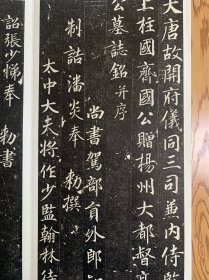 大唐故開府儀同三司兼內侍監
上柱國齊國公贈揚州大都督高
公墓誌銘并序
尚書駕部員外郎知
制誥潘炎奉 勅撰
太中大夫將作少監翰林待
詔張少悌奉 勅書